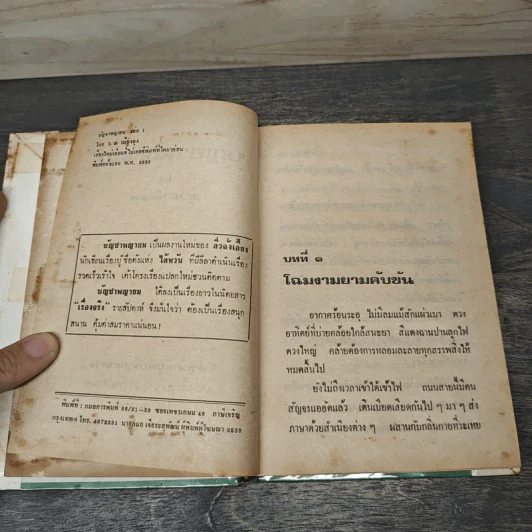 บัญชาพญายม เล่ม 1
พิมพ์ครั้งแรก พ.ศ. 2528
บัญชาพญายม เป็นผลงานใหม่ของ
นักเขียนเรื่องบู๊ชื่อดังแห่ง ไต้หวัน ที่มีลีลาดำเนินเรื่อง
รวดเร็วเร้าใจ เค้าโครงเรื่องแปลกใหม่ชวนติดตาม
บัญชาพญายม ได้ลงเป็นเรื่องยาวในนิตยสาร
"เรื่องจริง" รายสัปดาห์ จึงมั่นใจว่า ต้องเป็นเรื่องสนุก
สนาน คุ้มค่าสมราคาแน่นอน!
พิมพ์ที่ : กมลการพิมพ์ 36/21-25 ซอยเพชรเกษม 46 ภาษีเจริญ
กรุงเทพฯ โทร. 4672221 ผู้พิมพ์ผู้โฆษณา 2528
บทที่ ๑
โฉมงามยามคับขัน
อากาศร้อนระอุ ไม่มีลมแม้สักแผ่วเบา ดวง
อาทิตย์ที่บ่ายคล้อยใกล้สนธยา สีแดงฉานปานลูกไฟ
ดวงใหญ่ คล้ายต้องการหลอมละลายทุกสรรพสิ่งให้
หมดสิ้นไป
ยังไม่ถึงเวลาเข้าใต้เข้าไฟ ถนนสายนี้มีคน
สัญจรแออัดแล้ว เดินเบียดเสียดกันไป ๆ มา ๆ ส่ง
ภาษาด้วยสำเนียงต่าง ๆ ผสานกับกลิ่นกายที่ระเหย